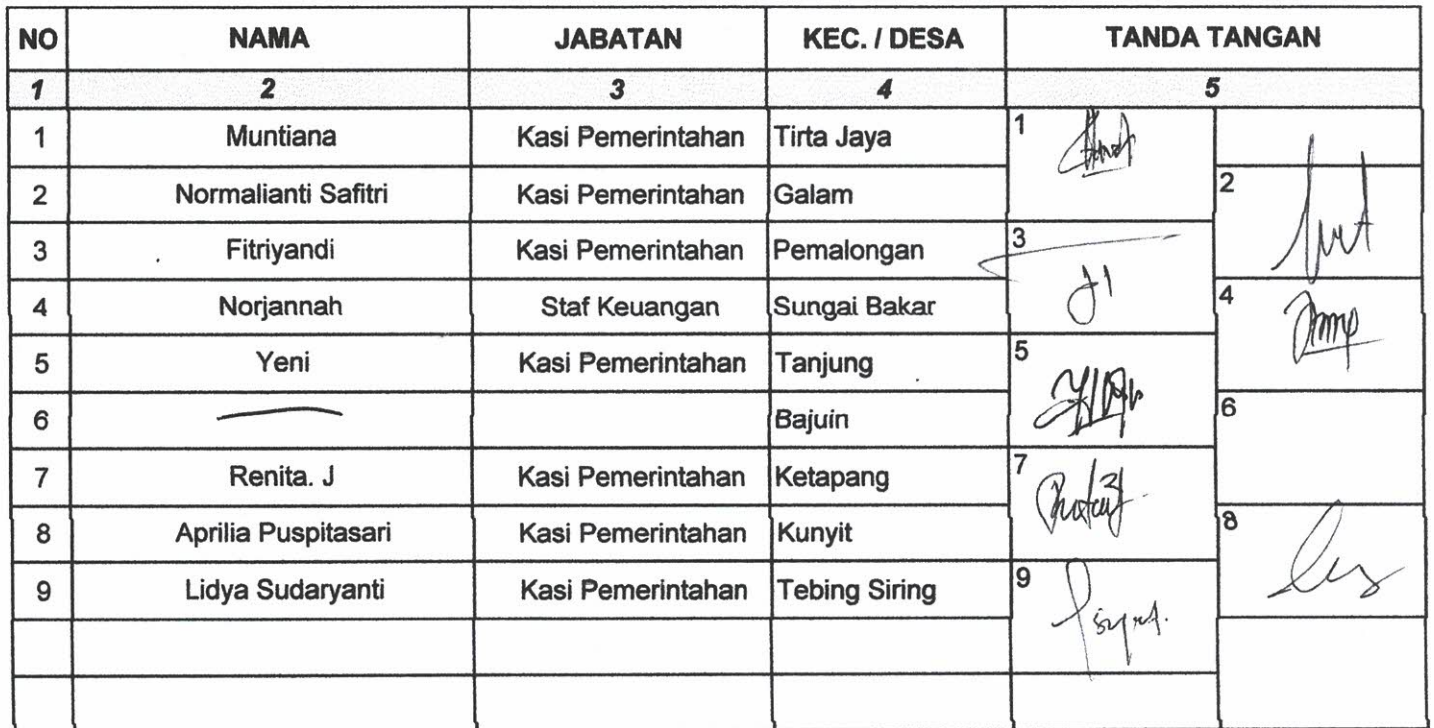 NO NAMA JABATAN KEC. / DESA TANDA TANGAN
1 2 3 4 5
1 Muntiana Kasi Pemerintahan Tirta Jaya 1
2 Normalianti Safitri Kasi Pemerintahan Galam 2
3 Fitriyandi Kasi Pemerintahan Pemalongan 3
4 Norjannah Staf Keuangan Sungai Bakar 4
5 Yeni Kasi Pemerintahan Tanjung 5
6 Bajuin 6
7 Renita. J Kasi Pemerintahan Ketapang 7
8 Aprilia Puspitasari Kasi Pemerintahan Kunyit 8
9 Lidya Sudaryanti Kasi Pemerintahan Tebing Siring 9